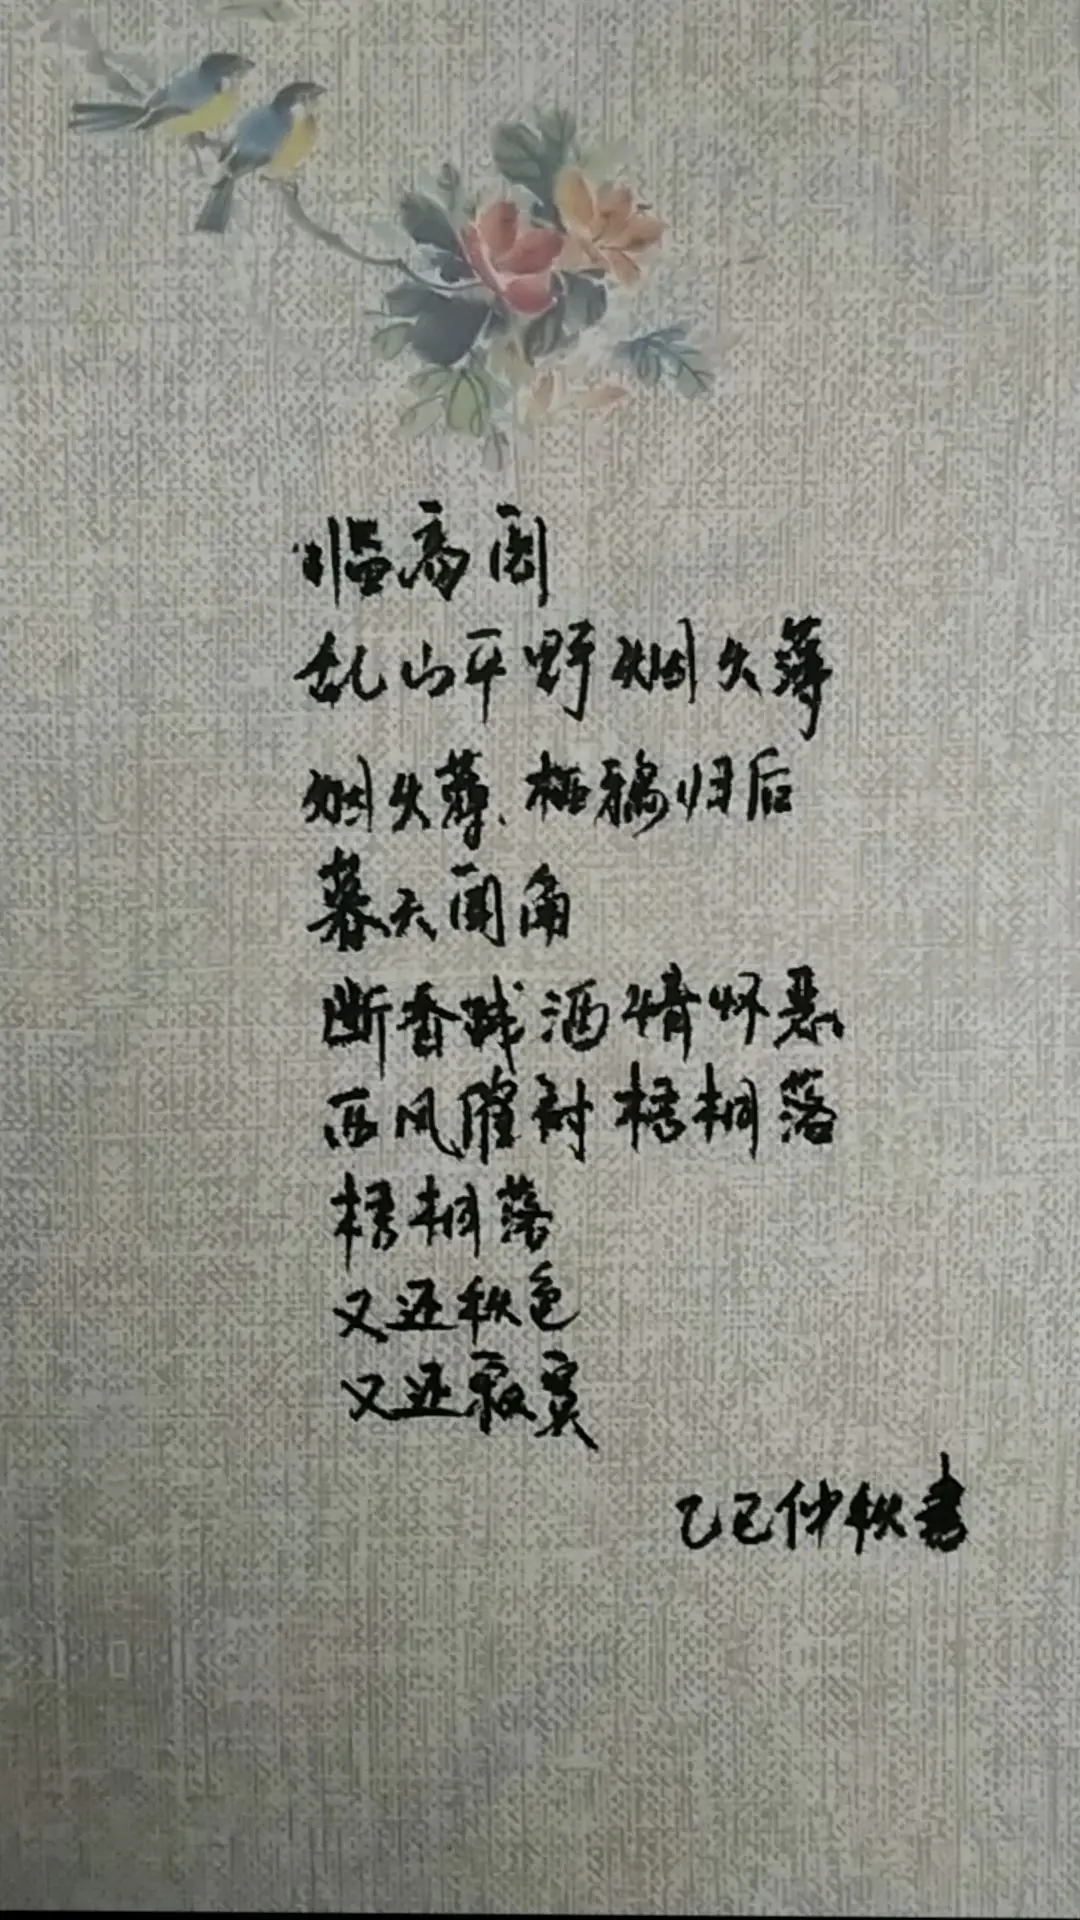 临高阁
乱山平野烟火薄
烟火薄、栖鸦归后
暮天闻角
断香残酒情怀恶
西风催衬梧桐落
梧桐落
又还秋色
又还寂寞
乙巳仲秋书